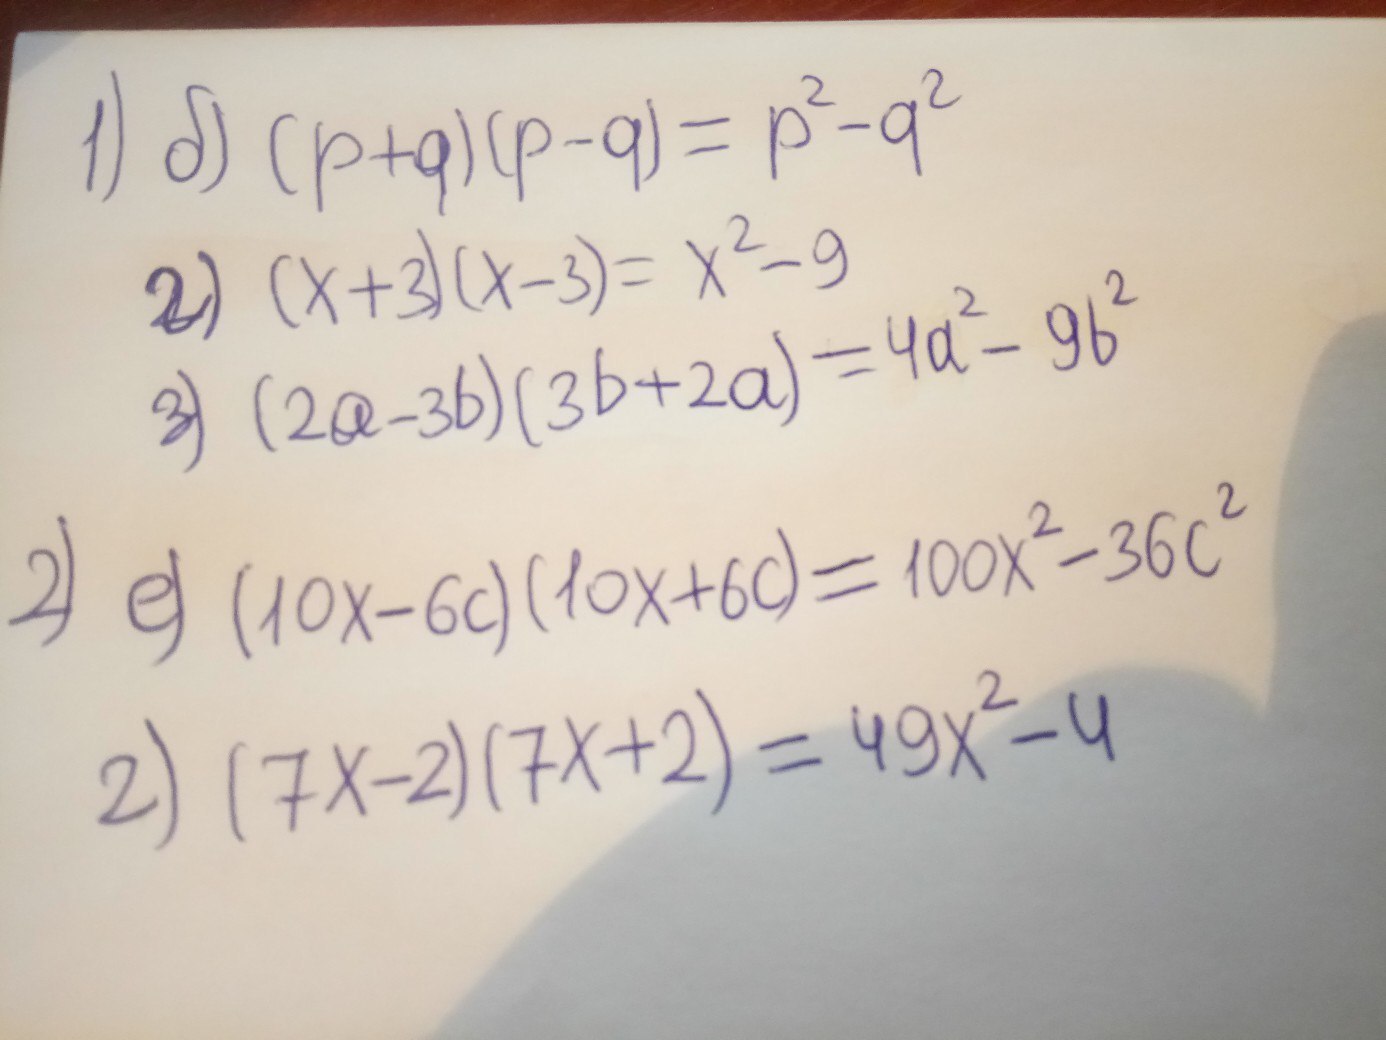 1) б) (p+q)(p-q)= p²-q²
2) (x+3)(x-3)= x²-9
3) (2a-3b)(3b+2a)=4a²-9b²
2) е) (10x-6c)(10x+6c)=100x²-36c²
2) (7x-2)(7x+2)=49x²-4